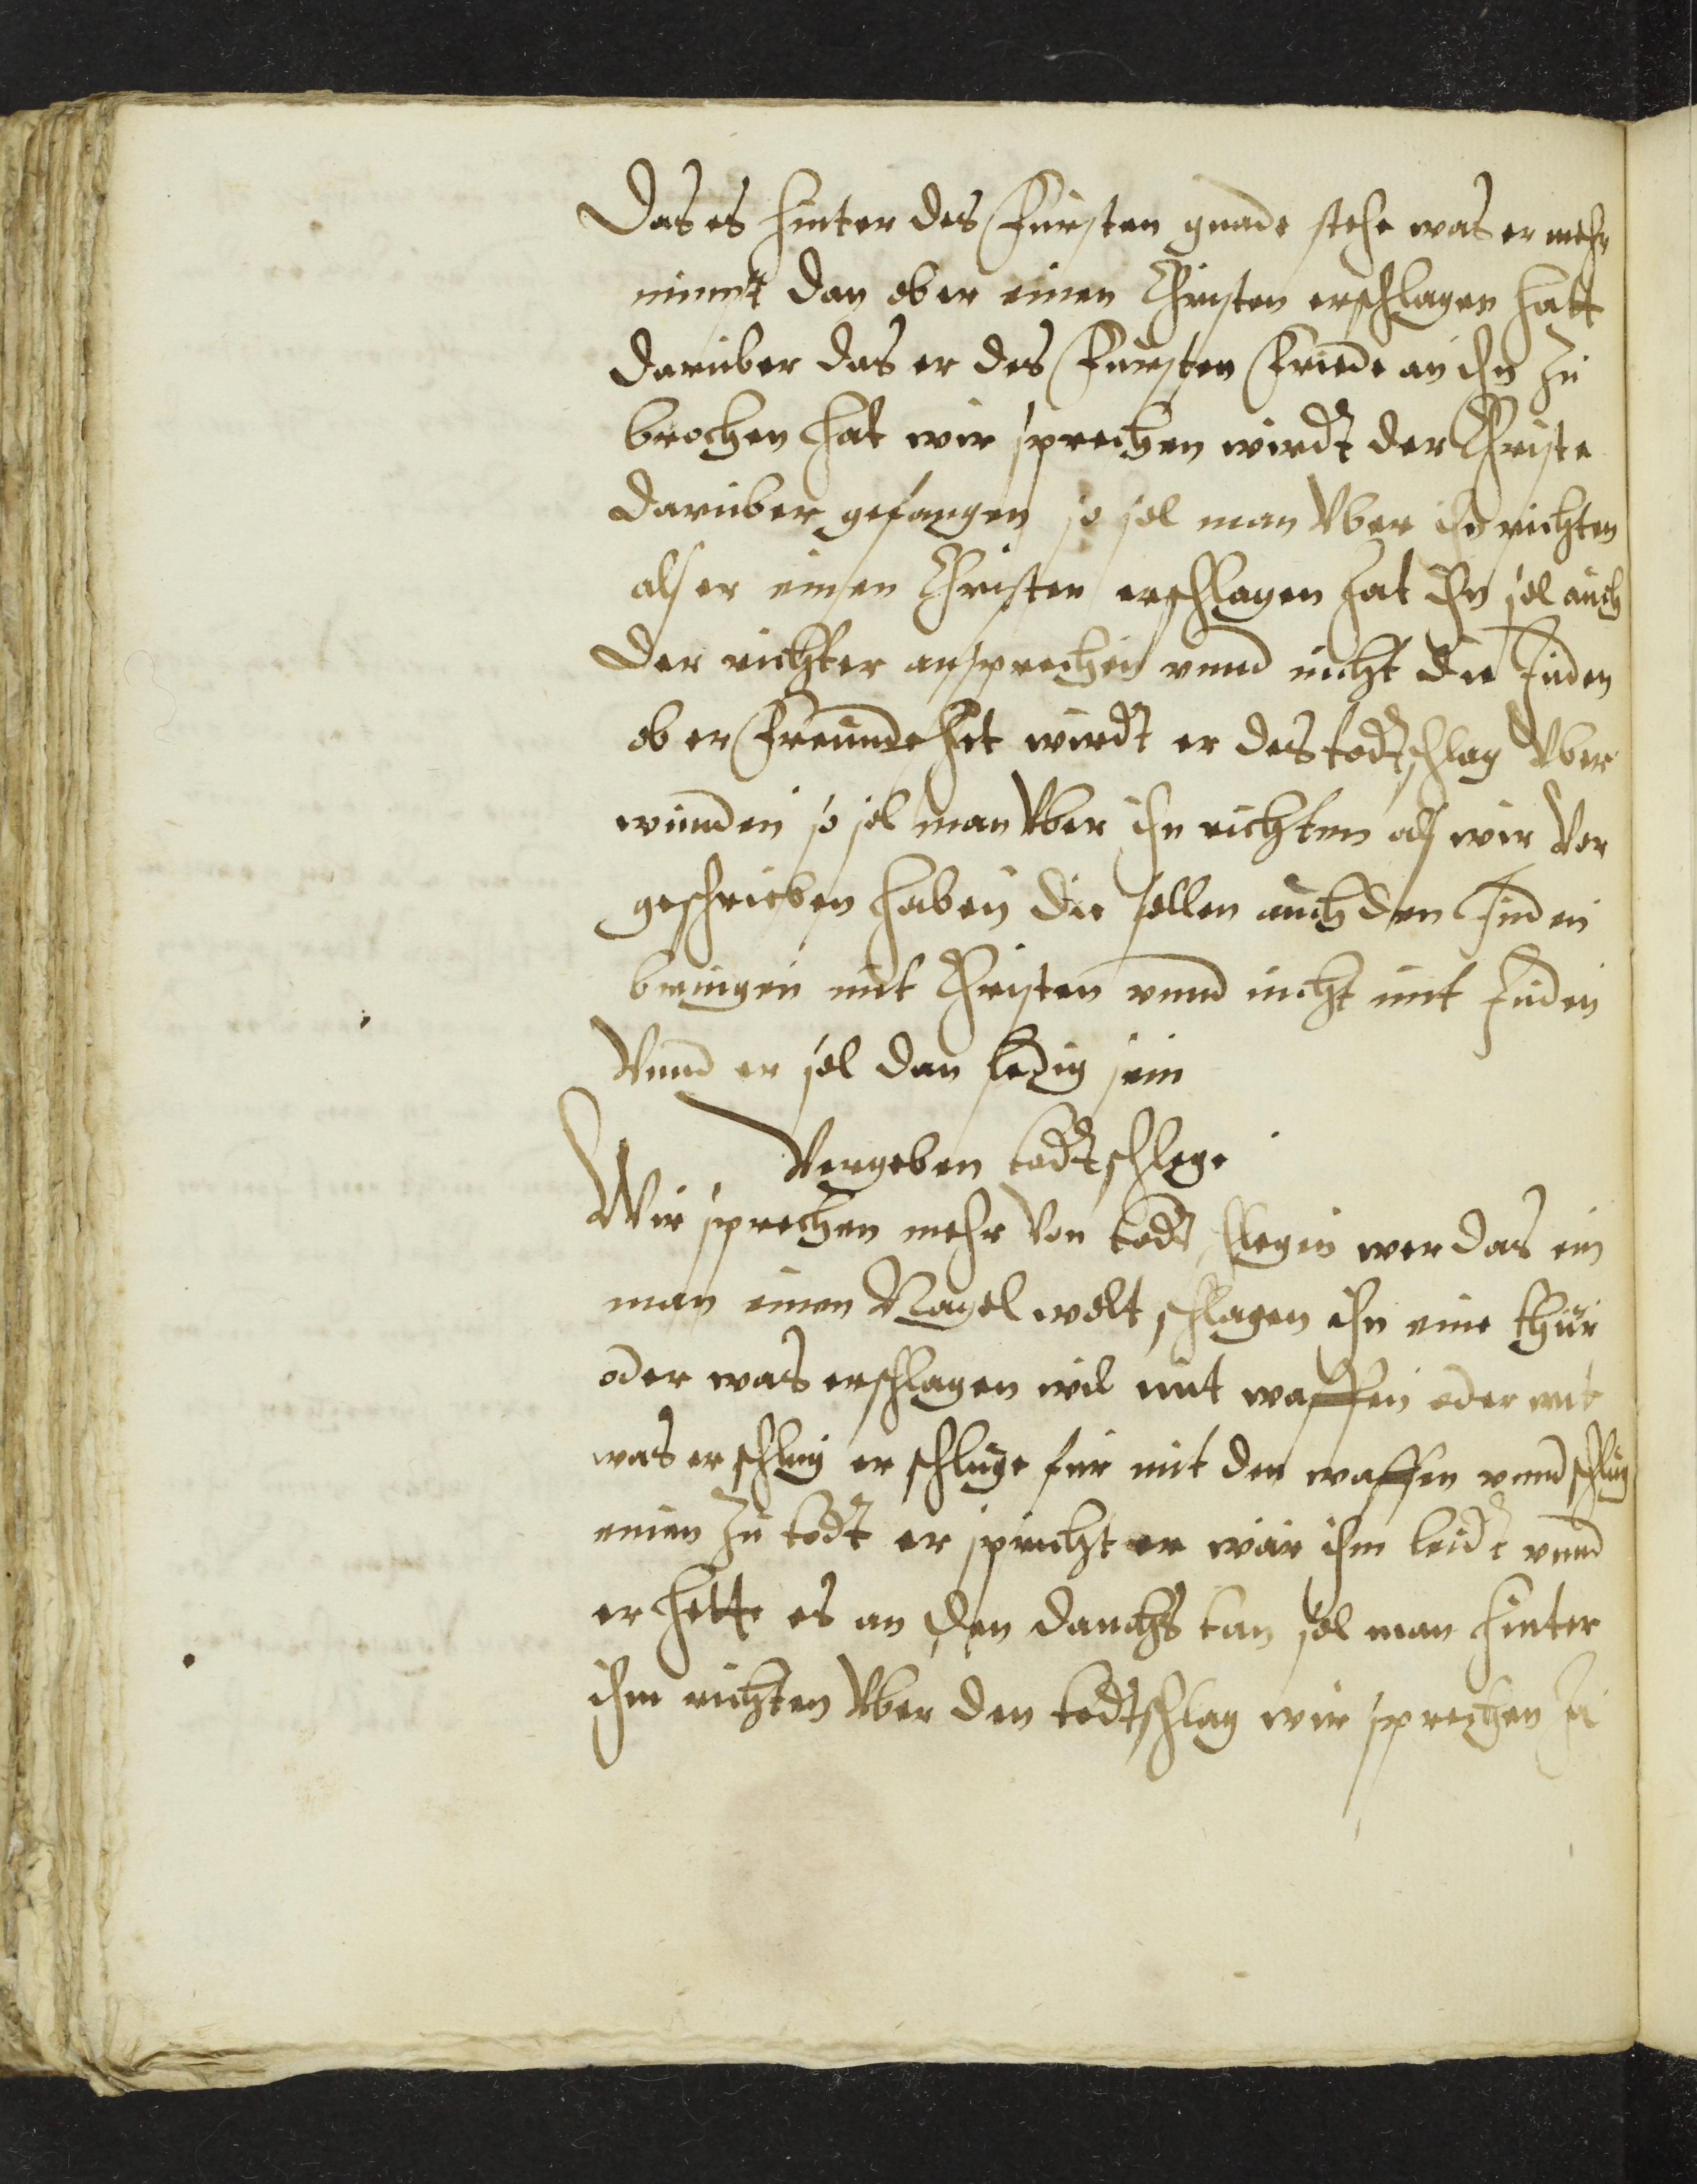 Das es hinter des Fursten gnade stehe was er mehr
nimpt dan ob er einen Christen erschlagen hatt
daruber das er des Fursten Friede an ihn zu
brochen hat wir sprechen wirdt der Christe
daruber gefangen so sol man Vber ihn richten
als er einen Christen erschlagen hat ihn sol auch
der richter ansprechen vnnd nicht die Juden
ob er Freunde hat wirdt er des todtschlag Vber
wunden so sol man Vber ihn richten als wir Vor
geschrieben haben die sollen auch den Juden
bringen mit Christen vnnd nicht mit Juden
Vnnd er sol dan ledig sein
Vergeben todtschlege
Wir sprechen mehr Von todt schlegen wer das ein
man einen Nagel wolt schlagen ihn eine thur
oder was er schlagen wil mit waffen oder mit
was er schlug er schluge fur mit den waffen vnnd schlug
einen zu todt er spricht er wär ihm leidt vnnd
er hette es an den danchs tan sol man hinter
ihm richten Vber den todtschlag wir sprechen zu